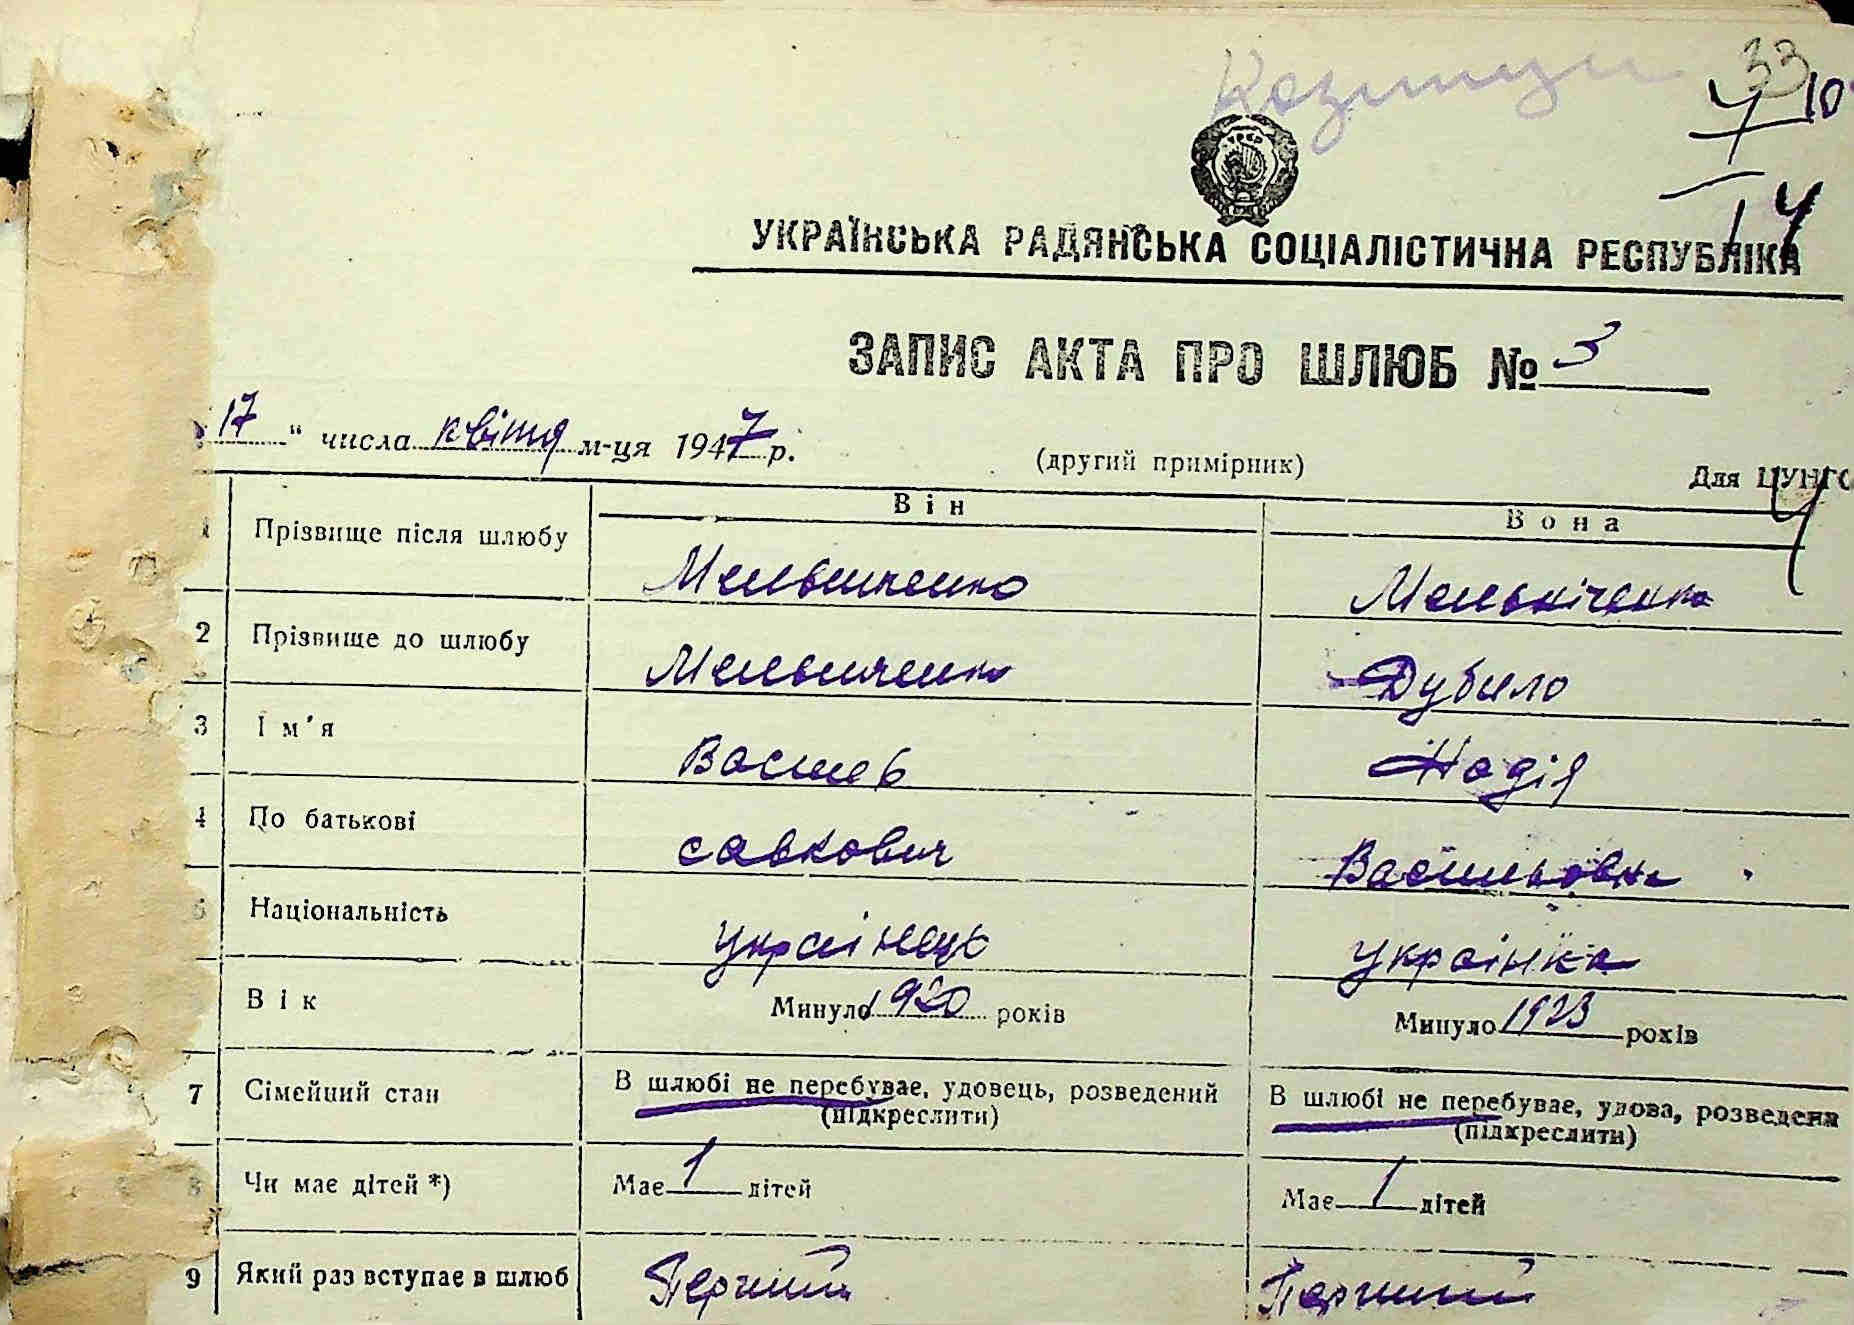 33
10
14
УКРАЇНСЬКА РАДЯНСЬКА СОЦІАЛІСТИЧНА РЕСПУБЛІКА
ЗАПИС АКТА ПРО ШЛЮБ № 3
17 " числа квітня м-ця 1947 р.
(другий примірник)
Для ЦУНГО
Він Вона
1 Прізвище після шлюбу Мельниченко Мельніченко
2 Прізвище до шлюбу Мельниченко Дубило
3 Ім'я Василь Надія
4 По батькові савкович Васильовна
5 Національність українець українка
Вік Минуло 1920 років Минуло 1923 років
7 Сімейний стан В шлюбі не перебуває, удовець, розведений (підкреслити) В шлюбі не перебуває, удова, розведена (підкреслити)
8 Чи має дітей *) Має 1 дітей Має 1 дітей
9 Який раз вступає в шлюб Перший Перший